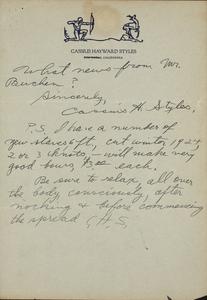 CASSIUS HAYWARD STYLES
CALIFORNIA
What news from Mr.
Buchen?
Sincerely,
Cassius H. Styles.
P.S. I have a number of
yew staves 6ft, cut winter 1927,
2 or 3 knots — will make very
good bows, $3.00 each.
Be sure to relax, all over
the body consciously, after
nocking & before commencing
the spread C.H.S.